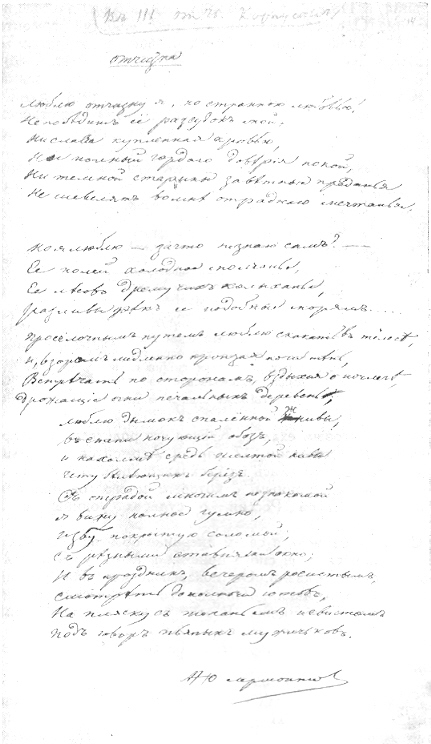 III
отчизна
люблю отчизну я, но странною любовью!
Не побѣдитъ её разсудокъ мой.
Ни слава купленная кровью,
Ни полный гордаго довѣрія покой,
Ни темной старины завѣтныя преданья
Не шевелятъ во мнѣ отраднаго мечтанья.
Но я люблю — за что не знаю самъ? —
Ея полей холодное молчанье,
Ея лѣсовъ дремучихъ колыханье,
разливы рѣкъ ея подобные морямъ....
Просёлочнымъ путемъ люблю скакать въ телегѣ,
И, взоромъ медленно пронзая ночи тѣнь,
Встрѣчать по сторонамъ, вздыхая о ночлегѣ,
Дрожащіе огни печальныхъ деревень,
люблю дымокъ спаленной жнивы,
въ степи ночующій обозъ,
и на холмѣ средь желтой нивы
чету бѣлѣющихъ берёзъ.
Съ отрадой многимъ незнакомой
я вижу полное гумно,
избу покрытую соломой,
съ рѣзными ставнями окно;
И въ праздникъ, вечеромъ росистымъ,
смотрѣть до полночи готовъ,
На пляску съ топаньемъ и свистомъ
Подъ говоръ пьяныхъ мужичковъ.
М Ю лермонтов